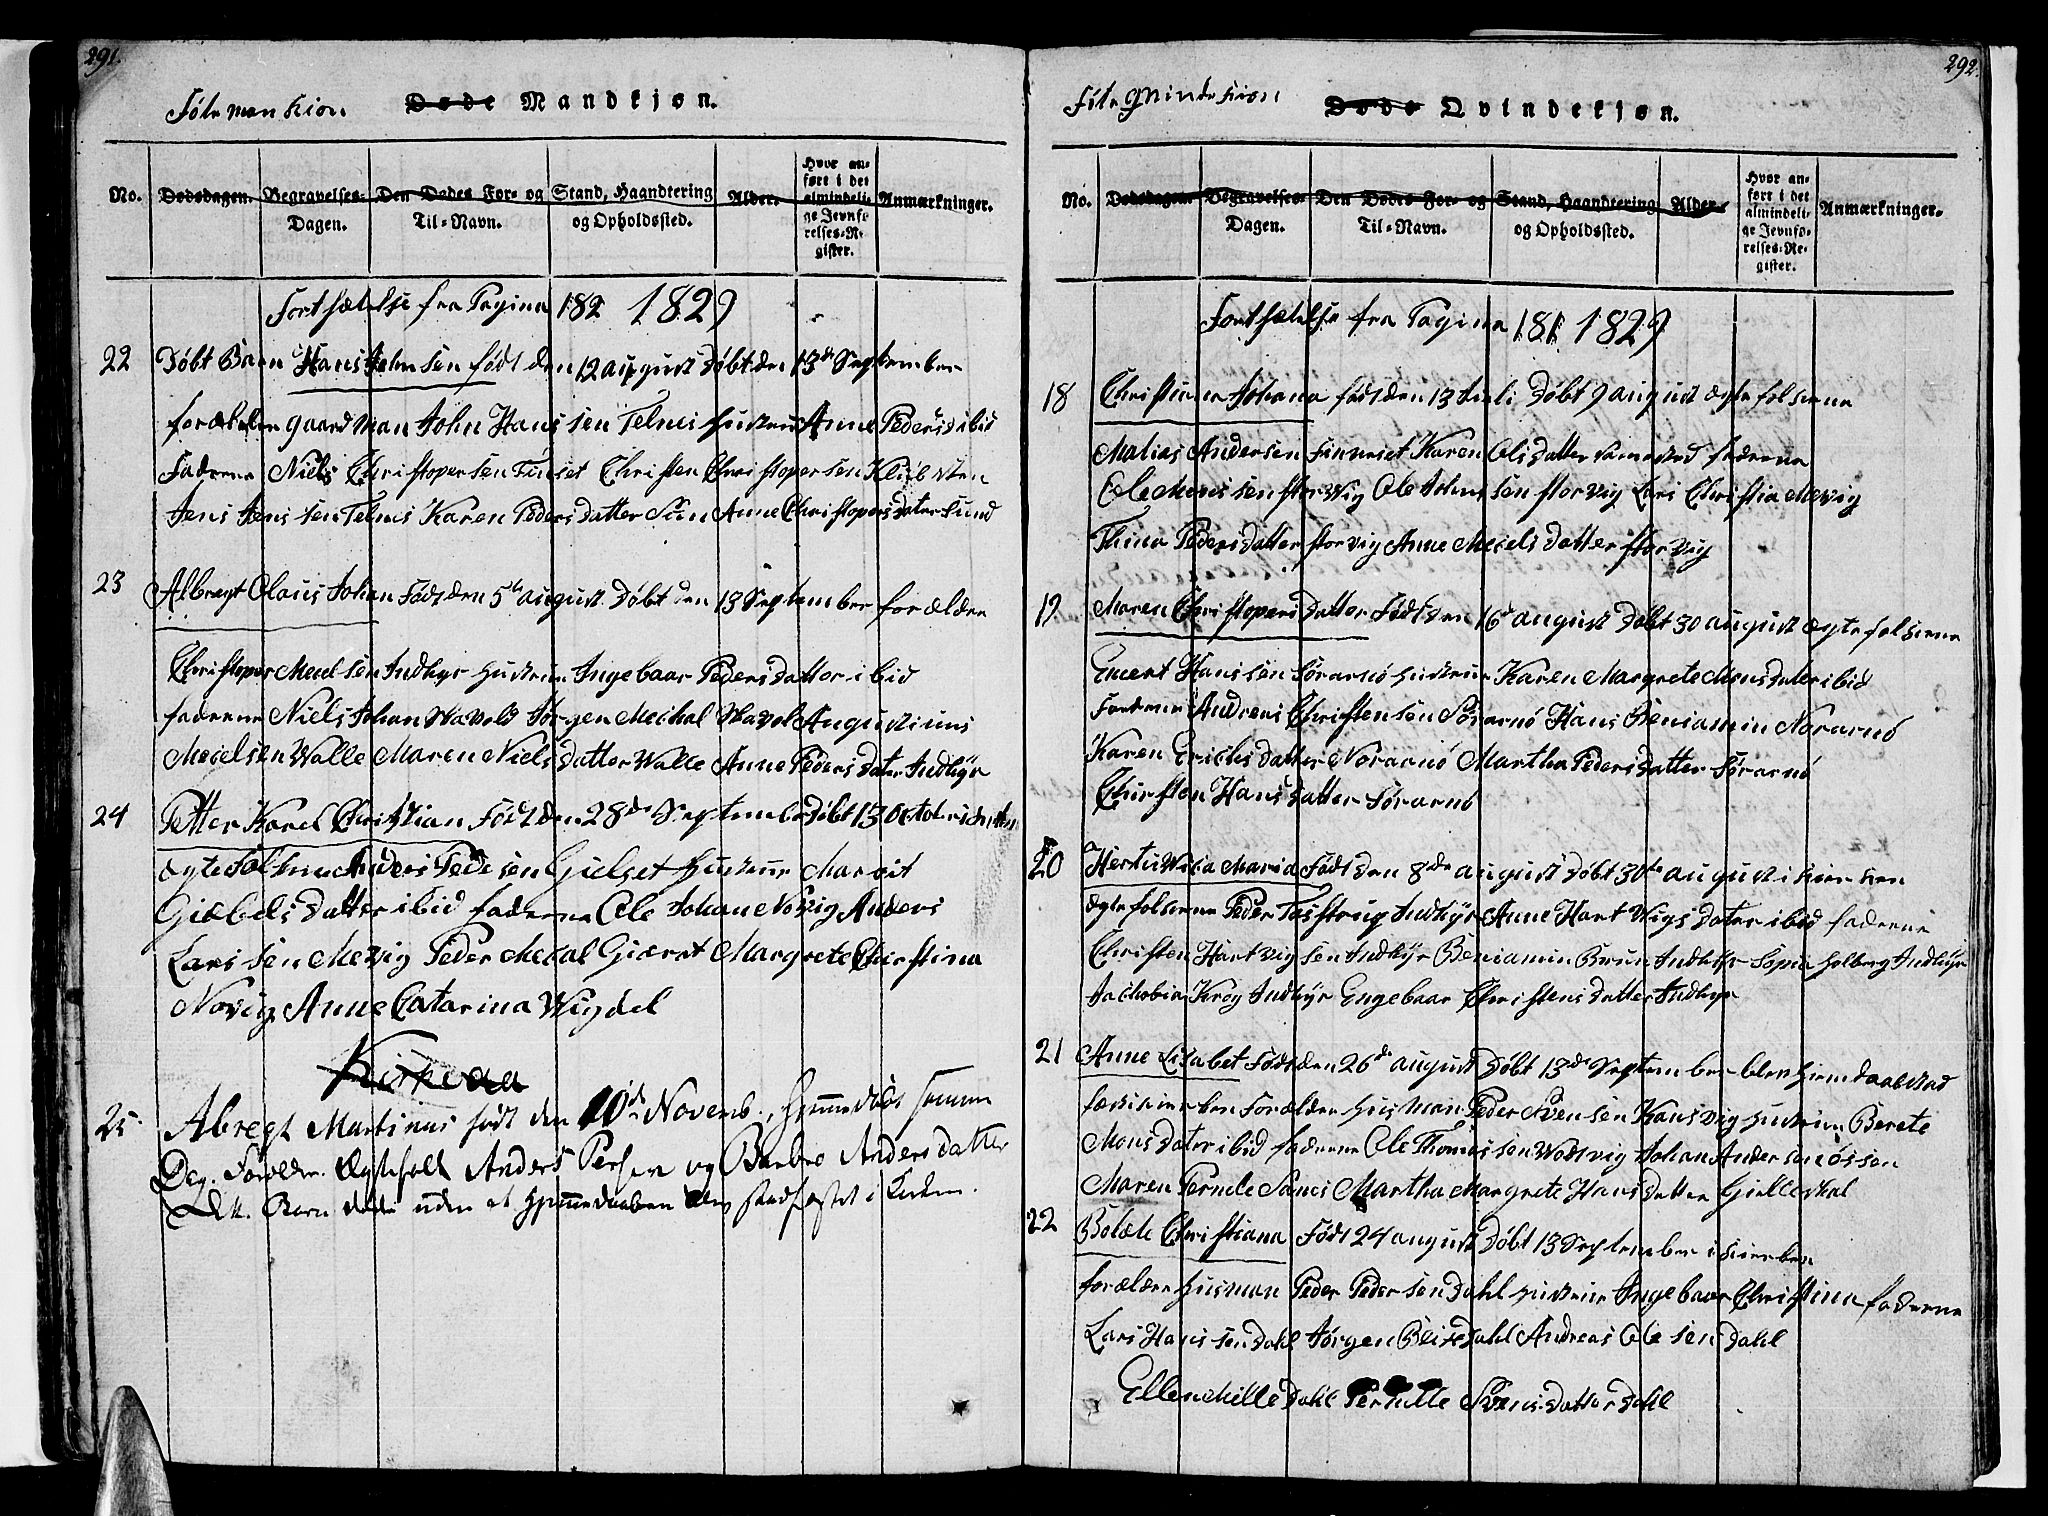 291.
Föte mankion Døde Mandkjøn.
No. Dødsdagen. Begravelses-Dagen. Den Dødes For- og Til-Navn. Stand, Haandtering og Opholdssted. Alder. Hvor anført i det almindelige Jevnførelses-Register. Anmærkninger.
Fortsættelse fra Pagina 182 1829
22 Döbt Barn Hans Johnsen født den 12 august Döbt den 13de September
forældre gaardman John Hanssen Telnes Hustru Anne Peders ibid
Faderne Niels Christopersen Funset Christen Christopersen
Jens Jenssen Telnes Karen Pedersdatter Sun Anne Christopersdater Sund
23 Albregt Claus Johan Födt den 5te august Döbt den 13 September forældre
Christoper Meelsen Indhyr Hustru Ingebaar Pedersdatter ibid
faderne Niels Johan Skavold Jørgen Meikal Skavol Augustinus
Meielsen Walle Maren Nielsdatter Walle Anne Pedersdater Indhyr
24 Petter Karel Christian Födt den 28de September Döbt 13 October
ægtefolkene Anders Pedesen Gielset Hustrue Marit
Giæbelsdatter ibid faderne Ole Johan Novig Anders
Larssen Mevig Peder Mekal Giærat Margrete Christina
Novig Anne Catarina Wigdel
Kirkevaa
25. Abregt Martinus født den 10de Novemb., hjemmedøbt samme
Dag. Foreldr. Ægtefolk Anders Persen og Barbro Andersdatter
Dette Barn døde uden at hjemmedaaben blev stadfæstet i Kirken.
292.
Föte qvindekiön Døde Qvindekjøn.
No. Dødsdagen. Begravelses-Dagen. Den Dødes For- og Til-Navn. Stand, Haandtering og Opholdssted. Alder. Hvor anført i det almindelige Jevnførelses-Register. Anmærkninger.
Fortsættelse fra Pagina 181 1829
18 Christiana Johana født den 13 Juli Döbt 9 august ægtefolkene
Matias Andersen Finneset Karen Olsdatter sammested faderne
Ole Monssen Storvig Ole Johnsen Storvig Lars Christia Mevig
Thina Pedersdatter Storvig Anne Meielsdatter Storvig
19 Maren Christopersdatter Födt den 16de august Döbt 30 august ægtefolkene
Emert Hanssen Sörarnö hustrue Karen Margrete Monsdater ibid
Faderne Andreas Christensen Sörarnö Hans Beniamin Norarnö
Karen Erichsdatter Norarnö Martha Pedersdatter Sörarnö
Christen Hansdatter Sörarnö
20 Hertu Wilia Maria Födt den 8de august Döbt 30te august i kirken
ægtefolkene Peder Tostrup Indhyr Anne Hartwigsdater ibid faderne
Christen Hartvigsen Indhyr Beniamin Brun Indhyr Sopia Holberg Indhyr
Jachobia Krog Indhyr Engebaar Christensdatter Indhyr
21 Anne Lisabet Födt den 26de august Döbt 13de September blev hiemdaab stad
fæst i kirken Forældre Husman Peder Svensen Kansvig hustrue Berete
Monsdater ibid faderne Ole Thomessen Wodsvig Johan Andersen össen
Maren Pernele Sanes Martha Margrete Hansdatter Gielleskal
22 Bolæte Christiana Födt 24 august Döbt 13 September i kierken
forældre husman Peder Pedersen Dahl hustrue Ingebaar Christina faderne
Lars Hanssen Dahl Jørgen Blix Dahl Andreas Olesen Dahl
Ellen Mille Dahl Pernille Svensdatter Dahl